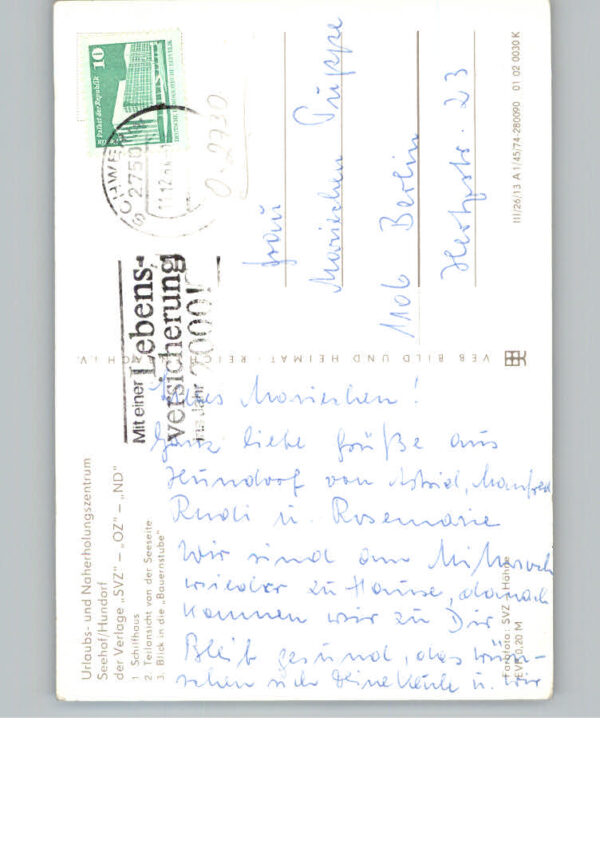 10
Palast der Republik
DEUTSCHE DEMOKRATISCHE REPUBLIK
SCHWERIN
2750
11.12.
Mit einer
Lebens-
versicherung
ins Jahr 2000!
Frau
Marieschen Puppe
1106 Berlin
Hertzstr. 23
III/26/13 A 1/45/74-280090 01 02 0030 K
VEB BILD UND HEIMAT · REICHENBACH I. V.
Urlaubs- und Naherholungszentrum
Seehof/Hundorf
der Verlage „SVZ" – „OZ" – „ND"
1 Schilfhaus
2. Teilansicht von der Seeseite
3. Blick in die „Bauernstube"
Liebes Marieschen!
Ganz liebe Grüße aus
Hundorf von Astrid, Manfred
Rudi u. Rosemarie
Wir sind am Mittwoch
wieder zu Hause, danach
kommen wir zu Dir
Bleib gesund, das wün-
schen sich Deine u. wir
Farbfoto: SVZ
EVP 0,20 M